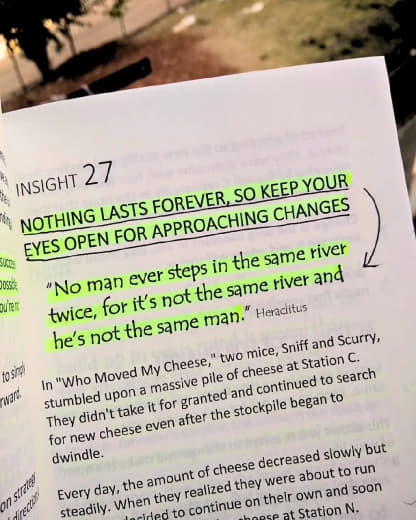 INSIGHT 27
NOTHING LASTS FOREVER, SO KEEP YOUR
EYES OPEN FOR APPROACHING CHANGES
"No man ever steps in the same river
twice, for it's not the same river and
he's not the same man." Heraclitus
In "Who Moved My Cheese," two mice, Sniff and Scurry,
stumbled upon a massive pile of cheese at Station C.
They didn't take it for granted and continued to search
for new cheese even after the stockpile began to
dwindle.
Every day, the amount of cheese decreased slowly but
steadily. When they realized they were about to run
decided to continue on their own and soon
cheese at Station N.
success
possible
you're
to simply
on strategy